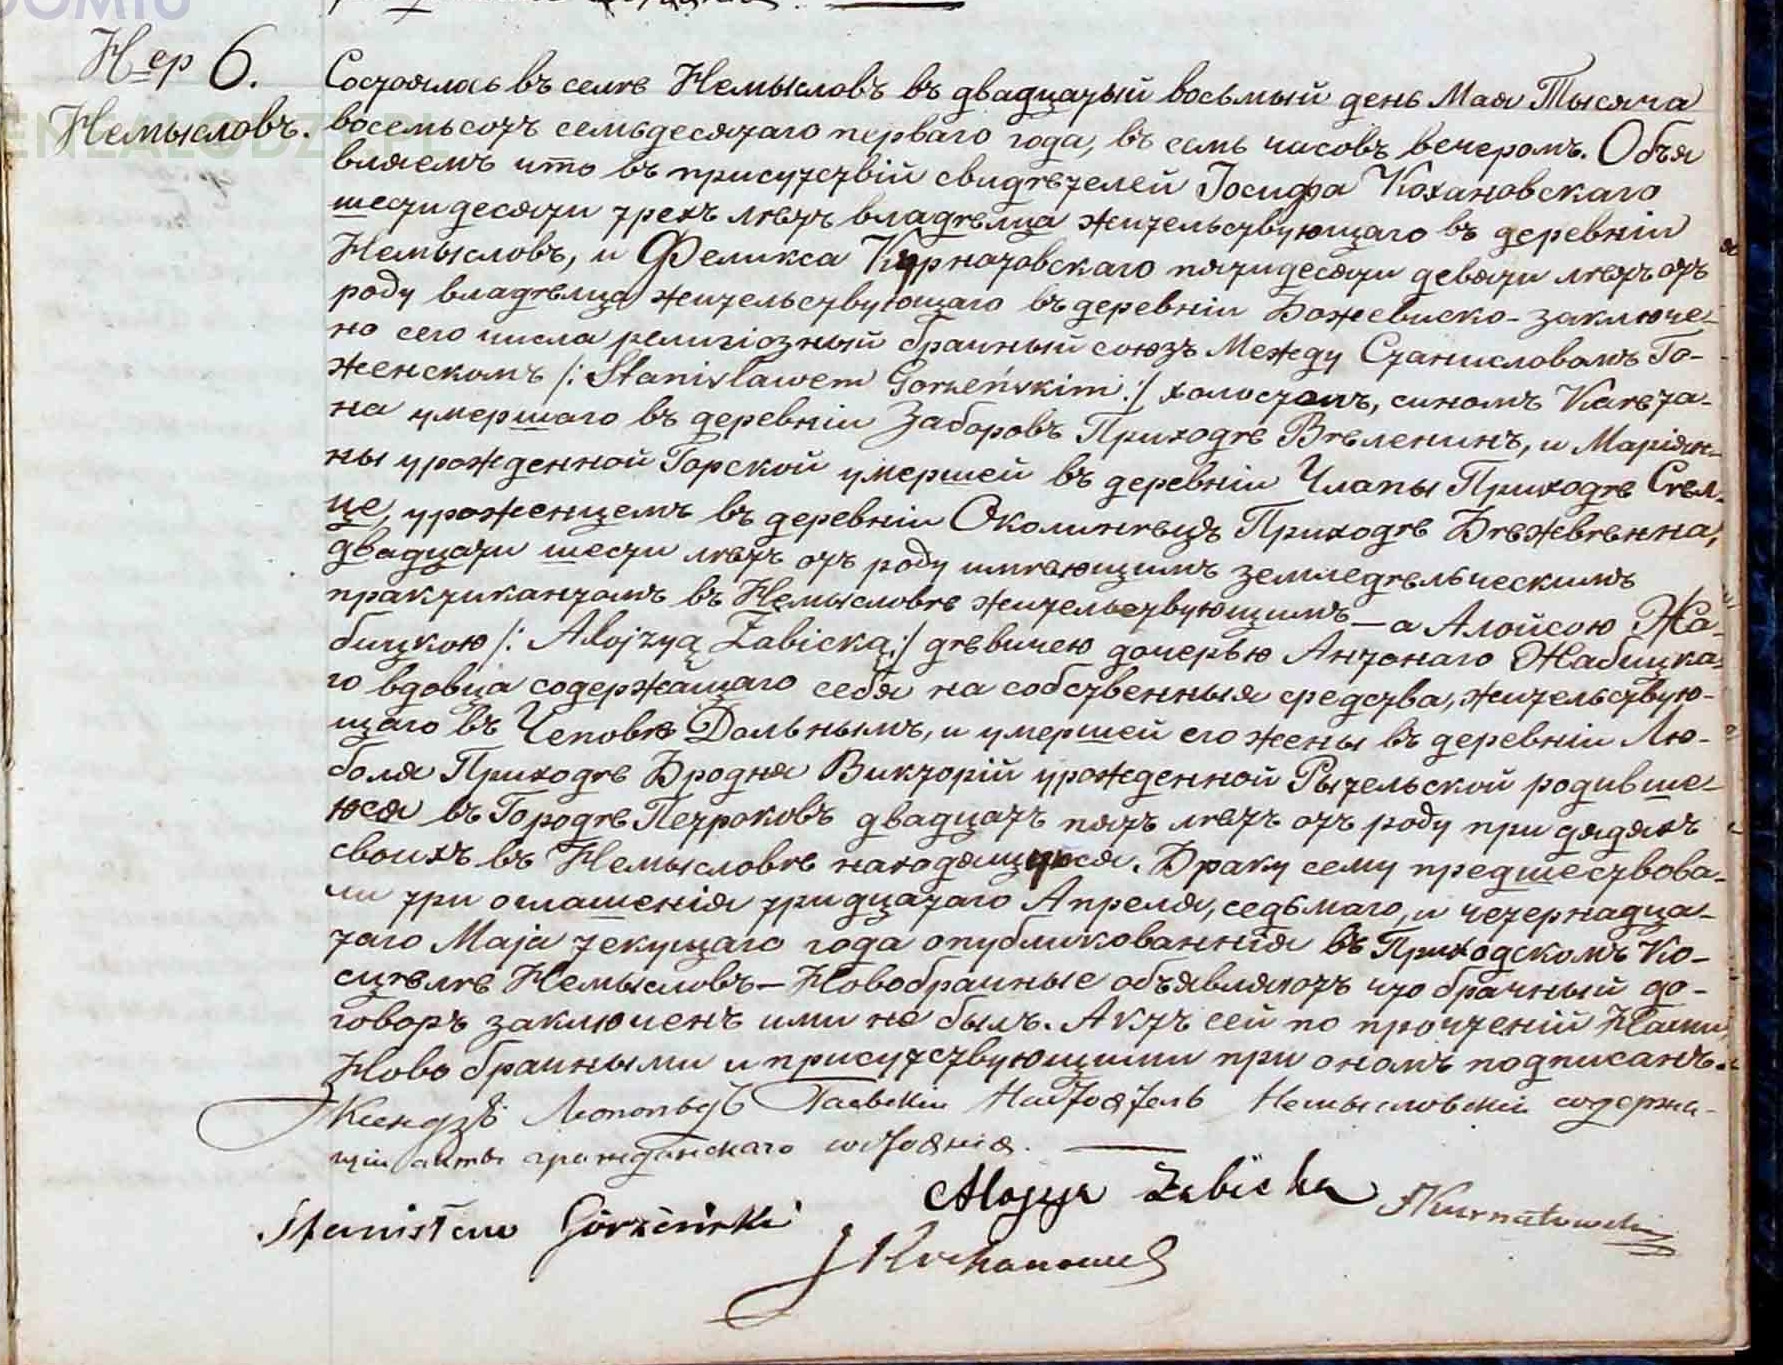 Нер 6.
Немысловъ.
Состоялось въ селѣ Немысловъ въ двадцатый восьмый день Мая Тысяча
восемьсотъ семьдесятаго перваго года, въ семь часовъ вечеромъ. Объя
вляемъ что въ присутствій свидѣтелей Іосифа Кохановскаго
шестидесяти трехъ лѣтъ владѣльца жительствующаго въ деревніи
Немысловъ, и Феликса Курнатовскаго пятидесяти девяти лѣтъ отъ
роду владѣльца жительствующаго въ деревніи Божевиско - заключе-
но сего числа религіозный брачный союзъ Между Станисловомъ Го-
женскомъ /: Stanisławem Gorzeńskim :/ холостомъ, сыномъ Каѣта-
на умершаго въ деревніи Заборовъ Приходѣ Вѣленинъ, и Маріян-
ны урожденной Горской умершей въ деревніи Члапы Приходѣ Сѣл-
це, уроженцемъ въ деревніи Околинѣцъ Приходѣ Бѣжвѣнна,
двадцати шести лѣтъ отъ роду имѣющимъ земледѣльческимъ
практикантомъ въ Немысловѣ жительствующимъ — а Алойсою Жа-
бицкою /: Alojzyą Żabicką :/ дѣвичею дочерью Антонаго Жабицка-
го вдовца содержащаго себя на собственныя средства, жительствую-
щаго въ Чеповѣ Дольнымъ, и умершей его жены въ деревніи Лю-
боля Приходѣ Бродня Викторій урожденной Рытельской родивше-
юся въ Городѣ Петроковъ двадцать пять лѣтъ отъ роду при дядяхъ
своихъ въ Немысловѣ находящуюся. Браку сему предшествова-
ли три оглашенія тридцатаго Апреля, седьмаго, и четернадца-
таго Маја текущаго года опубликованнія въ Приходскомъ Ко-
сцѣлѣ Немысловъ — Новобрачные объявляютъ что брачный до-
говоръ заключенъ ими не былъ. Актъ сей по прочтеній Нами,
Ново брачными и присутствующими при ономъ подписанъ.
Ксендзъ Леопольдъ Настоятель Немысловскій содержа-
щій акты гражданскаго состоянія.
Alojzya Żabicka FKurnatowski
Stanisław Gorzeński
JKochanowski